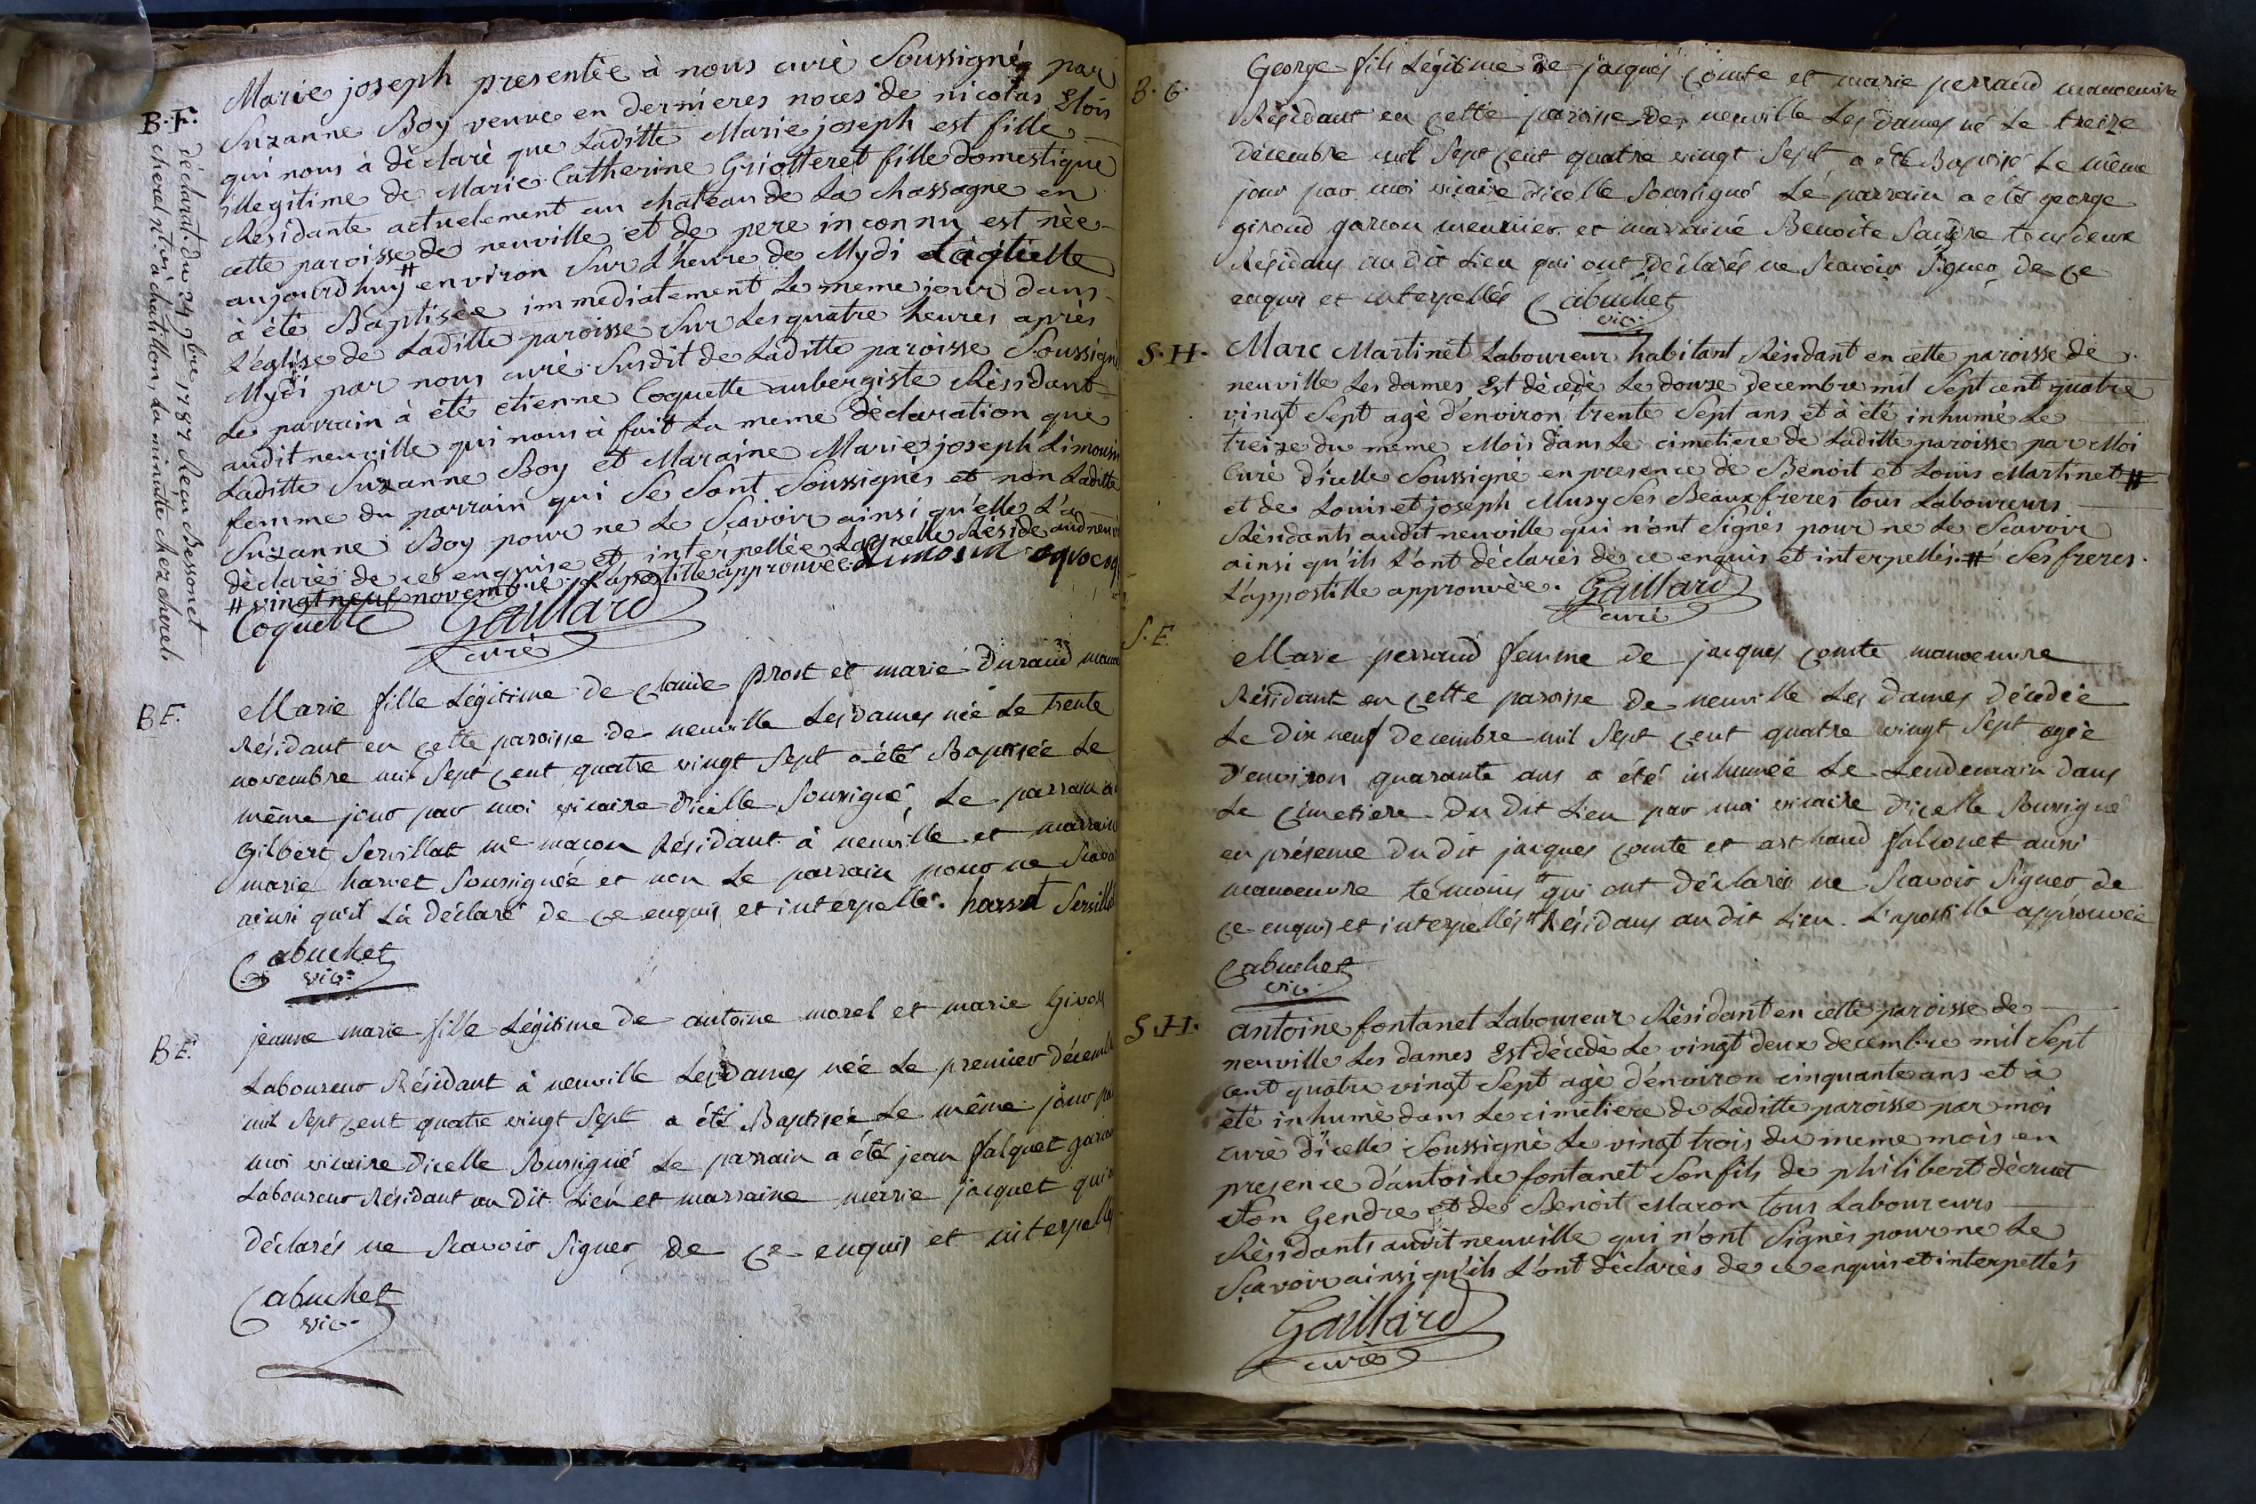 B. F.
déclarat. du 24 9bre 1787 Reçu Bessonet
cherel n.re à chatillon, La minutte chez cherel
Marie joseph presentée à nous curè Soussigné, par
Suzanne Boy veuve en dernieres noces de nicolas Elois
qui nous à dèclarè que Laditte Marie joseph est fille
illegitime de Marie Catherine Griotteret fille domestique
Rèsidante actuelement au chateau de La chassagne en
cette paroisse de neuville et de pere inconnu est nèe
aujourdhuy # environ Sur L'heure de Mydi Laquelle
à étè Baptisèe immediatement Le meme jour dans
L'èglise de Laditte paroisse Sur Les quatre heures après
Mydi par nous curè Susdit de Laditte paroisse Soussigné
Le parrain à étè etienne Coquette aubergiste Rèsidant
audit neuville qui nous à fait La meme dèclaration que
Laditte Suzanne Boy et Maraine Marie joseph Limousin
femme du parrain qui Se Sont Soussignès et non Laditte
Suzanne Boy pour ne Le Scavoir ainsi qu'elle L'a
dèclarè de ce enquise et interpellèe Laquelle Rèside aud neuv
# vingt neuf novembre L'apostille approuvèe
Coquette Gaillard
curè
B F.
Marie fille Légitime de Claude prost et marie Durand
Résidant en cette paroisse de neuville Les dames née Le trente
novembre mil Sept cent quatre vingt Sept a été Baptisée Le
même jour par moi vicaire d'icelle Soussigné, Le parrain
Gilbert Servillat me macon Résidant à neuville et marraine
marie harvet Soussignée et non Le parrain pour ne Scavoi
ainsi qu'il La déclaré de ce enquis et interpellé.
Cabuchet
vic.
B F.
jeanne marie fille Légitime de antoine morel et marie
Laboureur Résidant à neuville Les Dames née Le premier décemb
mil Sept cent quatre vingt Sept a été Baptisée Le même jour pa
moi vicaire d'icelle Soussigné Le parrain a été jean falquet garco
Laboureur Résidant au dit Lieu et marraine marie jacquet qui
déclarés ne Scavoir Signer de ce enquis et interpellés
Cabuchet
vic.
B. G.
George fils Légitime de jacques comte et marie perraud manoeuvre
Résidant en cette paroisse de neuville Les dames né Le treize
décembre mil Sept cent quatre vingt Sept a été Baptisé Le même
jour par moi vicaire d'icelle Soussigné Le parrain a été george
giroud garcon meunier et marraine Benoite tous deux
Résidans au dit Lieu qui ont déclarés ne Scavoir Signer de ce
enquis et interpellés Cabuchet
vic.
S. H.
Marc Martinet Laboureur habitant Rèsidant en cette paroisse de
neuville Les dames Est dècedè Le douze decembre mil Sept cent quatre
vingt Sept agè d'environ trente Sept ans et à étè inhumè Le
treize du meme Mois dans Le cimetiere de Laditte paroisse par Moi
Curè d'icelle Soussignè en presence de Benoit et Louis Martinet #
et de Louis et joseph Musy Ses Beaux frères tous Laboureurs
Rèsidants audit neuville qui n'ont Signès pour ne Le Scavoir
ainsi qu'ils L'ont dèclarès de ce enquis et interpellès. # Ses freres.
L'appostille approuvèe. Gaillard
curè
S. F.
Marie perraud femme de jacques comte manoeuvre
Résidant en cette paroisse de neuville Les dames décédée
Le dix neuf decembre mil Sept cent quatre vingt Sept agée
d'environ quarante ans a été inhumée Le Lendemain dans
Le cimetiere du dit Lieu par moi vicaire d'icelle Soussigné
en présence du dit jacques comte et arthaud falconet aussi
manoeuvre témoins # qui ont déclarés ne Scavoir Signer de
ce enquis et interpellés # Résidans au dit Lieu. L'apostille approuvée
Cabuchet
vic.
S. H.
antoine fontanet Laboureur Rèsidant en cette paroisse de
neuville Les dames Est dècedè Le vingt deux decembre mil Sept
cent quatre vingt Sept agè d'environ cinquante ans et à
étè inhumè dans Le cimetiere de Laditte paroisse par moi
curè d'icelle Soussignè Le vingt trois du meme mois en
presence d'antoine fontanet Son fils de philibert dècruat
Son Gendre et de Benoit Macon tous Laboureurs
Rèsidants audit neuville qui n'ont Signès pour ne Le
Scavoir ainsi qu'ils L'ont dèclarès de ce enquis et interpellès
Gaillard
curè